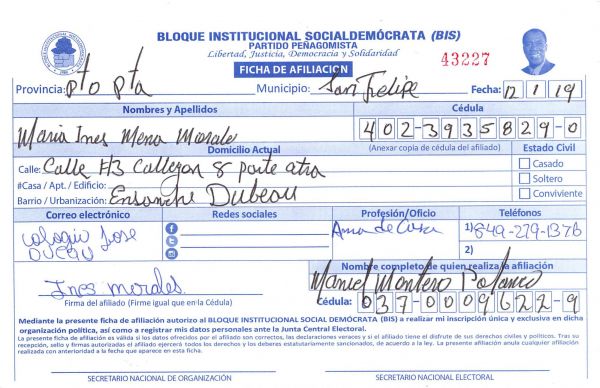 BLOQUE INSTITUCIONAL SOCIALDEMÓCRATA (BIS)
PARTIDO PEÑAGOMISTA
Libertad, Justicia, Democracia y Solidaridad
43227
FICHA DE AFILIACIÓN
Provincia: pto pta Municipio: San Felipe Fecha: 12/1/19
Nombres y Apellidos Cédula
Maria Ines Mena Morale 402-3935829-0
(Anexar copia de cédula del afiliado)
Domicilio Actual Estado Civil
Calle: Calle #3 Callejon 8 parte atra Casado
#Casa / Apt. / Edificio: Soltero
Barrio / Urbanización: Ensanche Dubeau Conviviente
Correo electrónico Redes sociales Profesión/Oficio Teléfonos
colegio Jose Ama de Casa 1) 849-279-1376
2)
Ines morales
Nombre completo de quien realiza la afiliación
Manuel Montero Polanco
Firma del afiliado (Firme igual que en la Cédula) Cédula: 037-0009622-9
Mediante la presente ficha de afiliación autorizo al BLOQUE INSTITUCIONAL SOCIAL DEMÓCRATA (BIS) a realizar mi inscripción única y exclusiva en dicha
organización política, así como a registrar mis datos personales ante la Junta Central Electoral.
La presente ficha de afiliación es válida si los datos ofrecidos por el afiliado son correctos, las declaraciones veraces y si el afiliado tiene el disfrute de sus derechos civiles y políticos. Tras su
recepción, sello y firmas autorizadas el afiliado ejercerá todos los derechos y los deberes estatutariamente sancionados, de acuerdo a la ley. La presente afiliación anula cualquier afiliación
realizada con anterioridad a la fecha que aparece en esta ficha.
SECRETARIO NACIONAL DE ORGANIZACIÓN SECRETARIO NACIONAL ELECTORAL